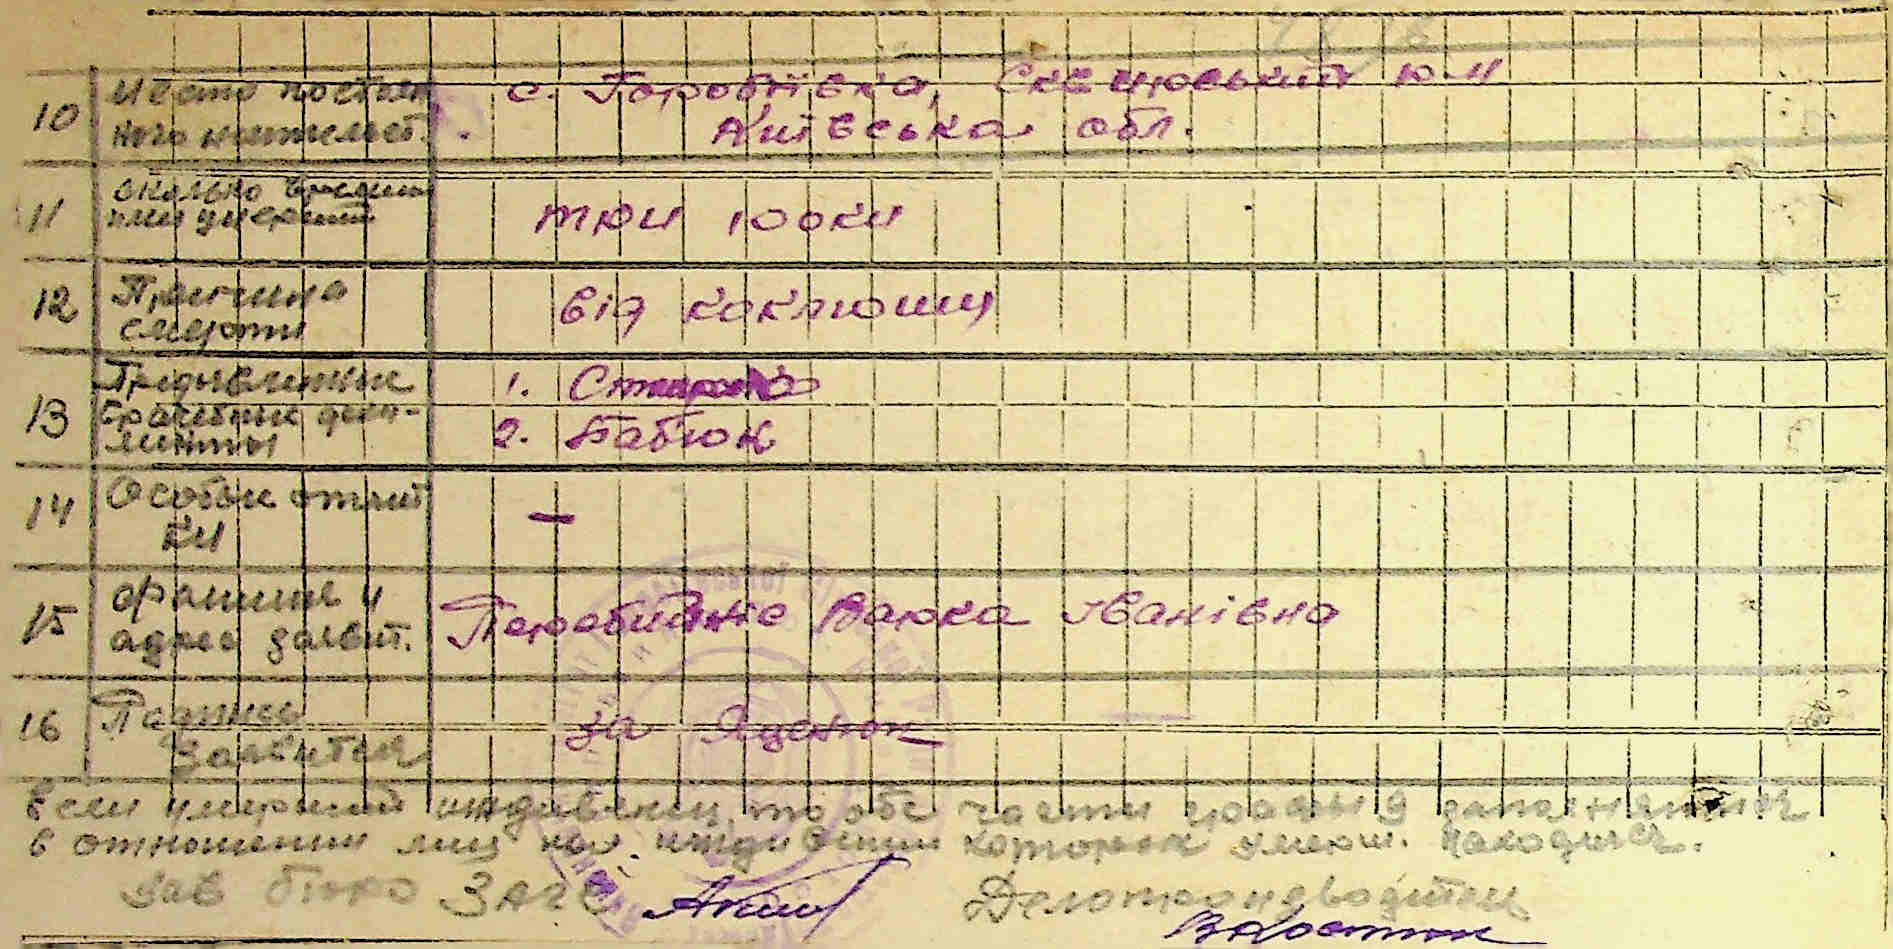 10 Место постоян ного жительст. с. Горобіївка, Сквирський р-н
Київська обл.
11 сколько времени три роки
12 Причина смерти від коклюшу
13 Предъявленные врачебные доку-менты 1.
2. Бабюк
14 Особые отмет ки —
15 фамилия и адрес заявит. Варка Іванівна
16 Подпись заявителя за Яценюк
Если умерший иждивенец, то обе части графы 9 заполняются
в отношении лиц на иждивении которых умерш. находился.
Зав бюро ЗАГС Делопроизводитель